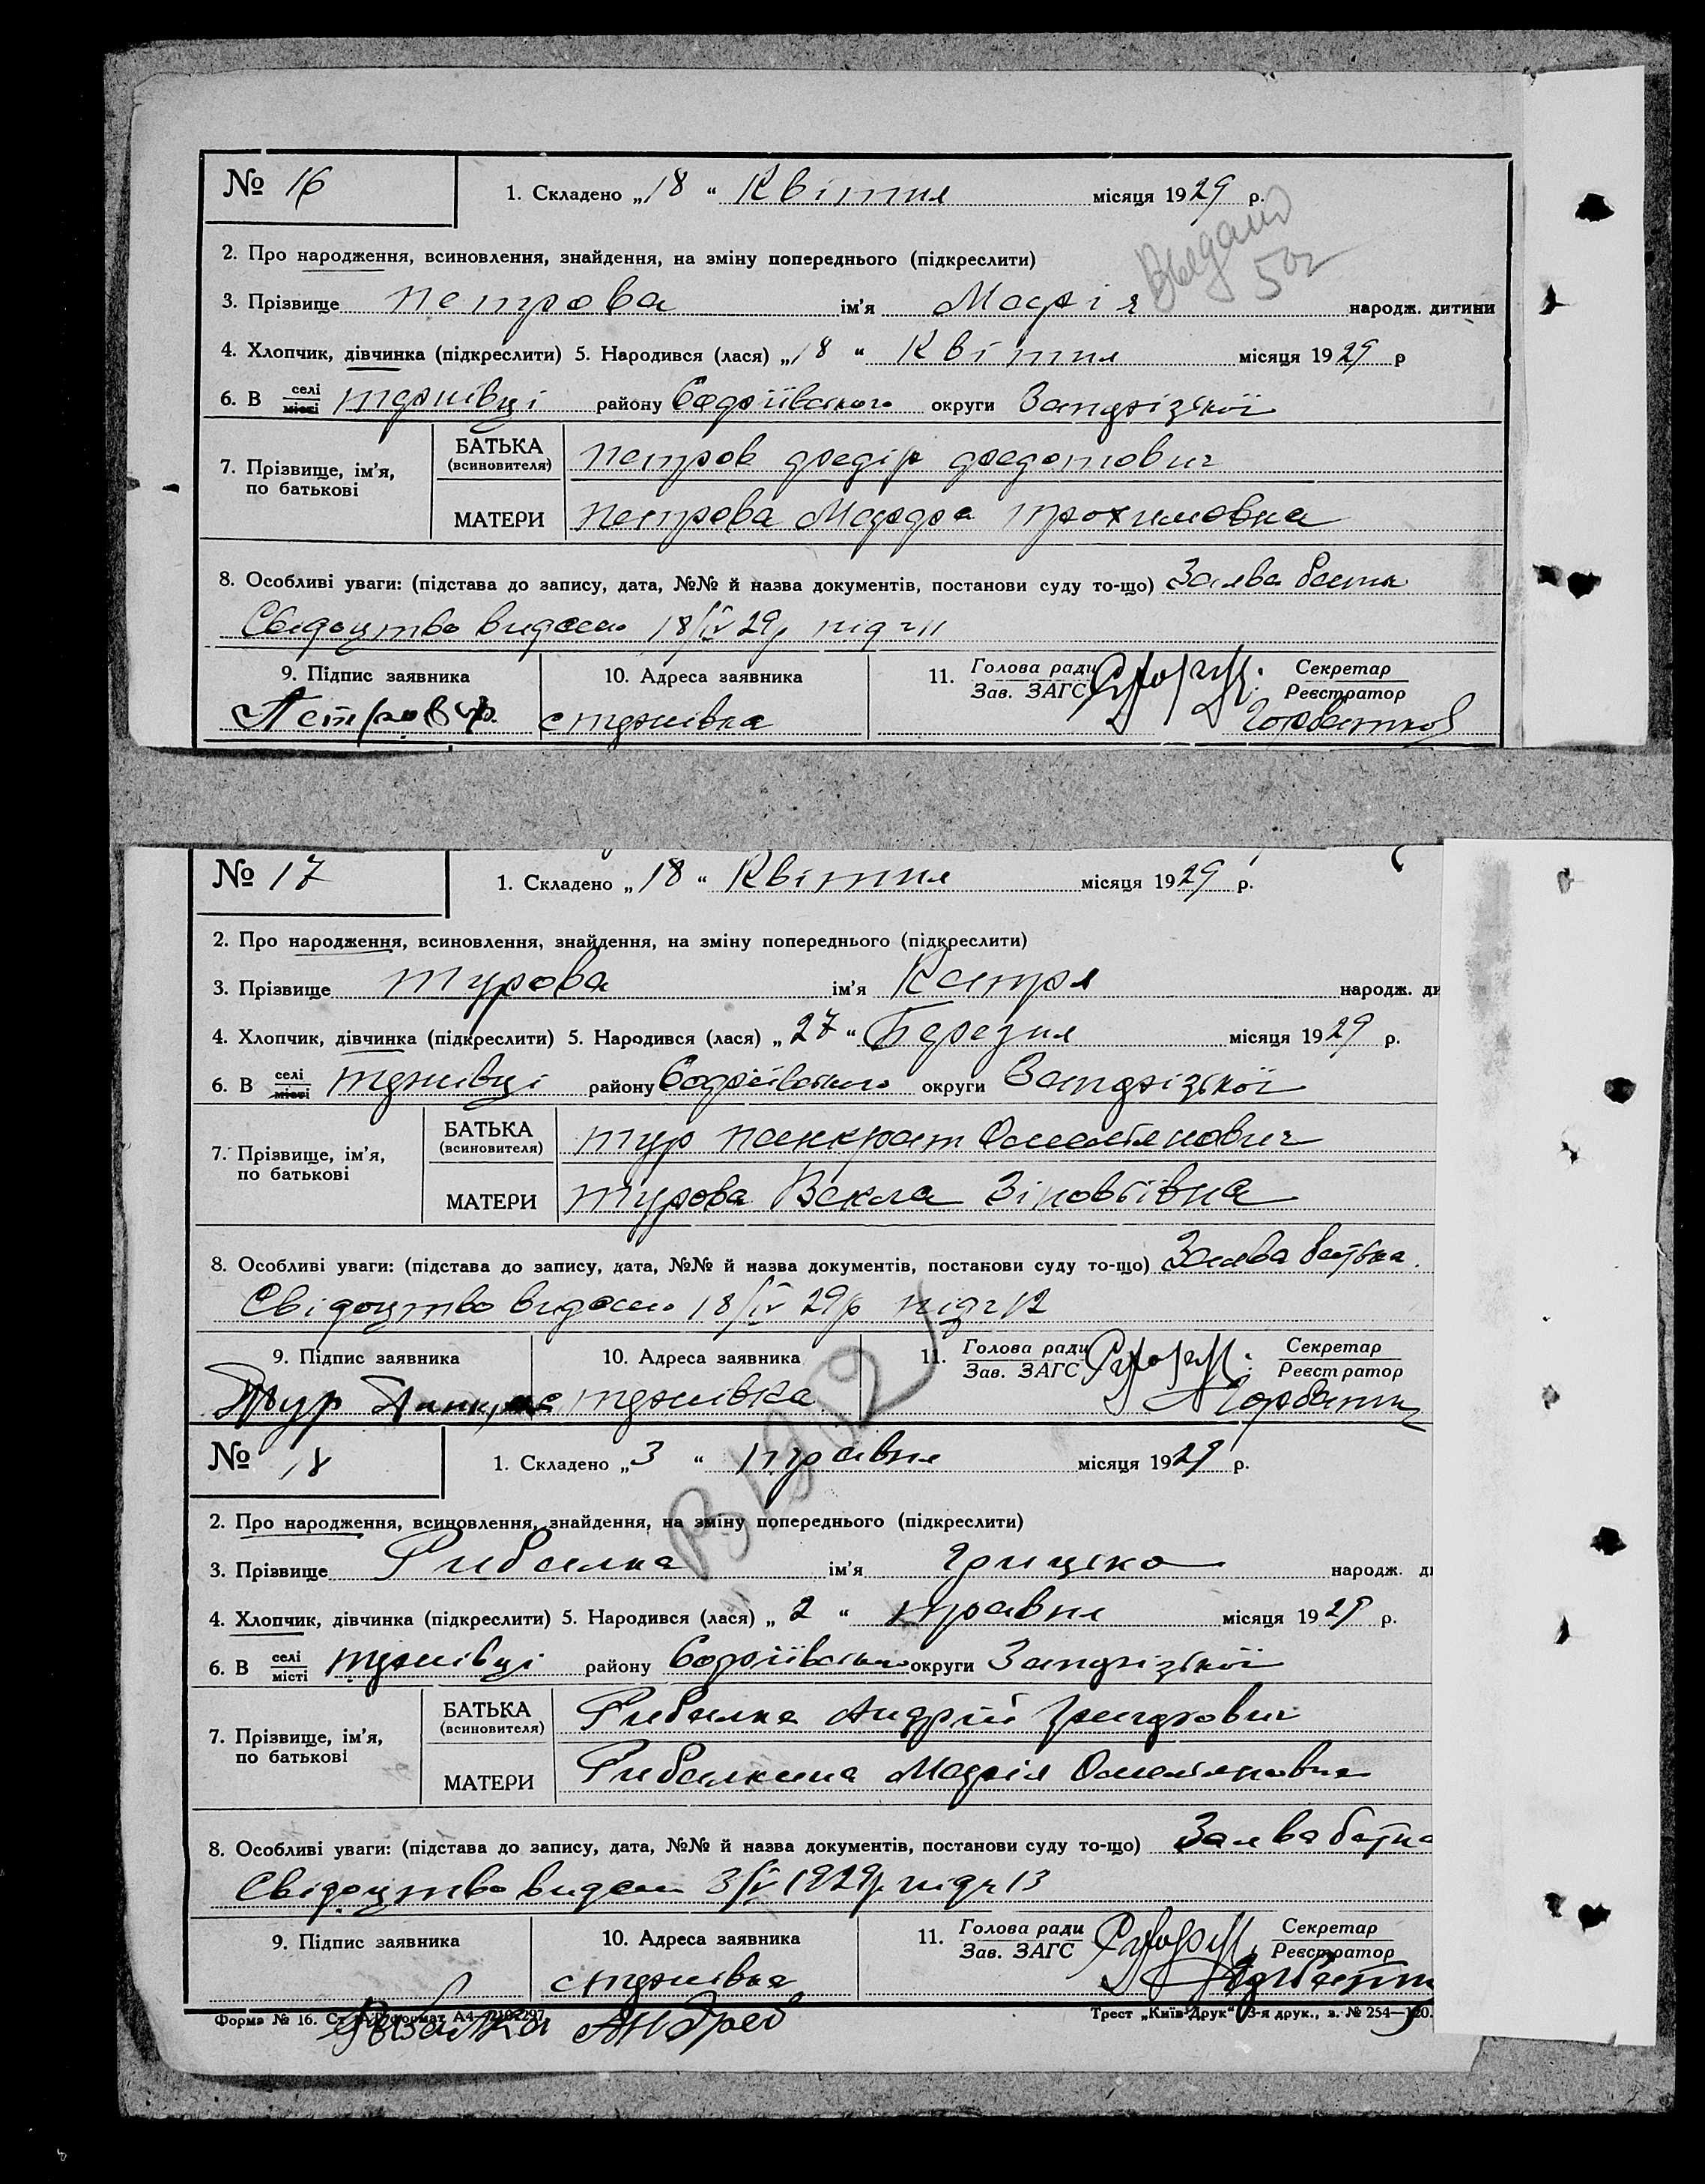 № 16
1. Складено „18“ Квітня місяця 1929 р.
Выдано
50г
2. Про народження, всиновлення, знайдення, на зміну попереднього (підкреслити)
3. Прізвище Петрова ім'я Марія народж. дитини
4. Хлопчик, дівчинка (підкреслити) 5. Народився (лася) „18“ Квітня місяця 1929 р
6. В селі місті районy округи Запорізької
7. Прізвище, ім'я, по батькові
БАТЬКА (всиновителя) Петров Федір Федотович
МАТЕРИ Петрова Марфа Трохимовна
8. Особливі уваги: (підстава до запису, дата, №№ й назва документів, постанови суду то-що) Заява батьк
Свідоцтво видано 18/IV 29р під ч 11
9. Підпис заявника 10. Адреса заявника 11. Голова ради Зав. ЗАГС Секретар Реєстратор
Петров Ф. Горбатко
№ 17
1. Складено „18“ Квітня місяця 1929 р.
2. Про народження, всиновлення, знайдення, на зміну попереднього (підкреслити)
3. Прізвище Турова ім'я Катря народж. ди
4. Хлопчик, дівчинка (підкреслити) 5. Народився (лася) „27“ Березня місяця 1929 р.
6. В селі місті району округи Запорізької
7. Прізвище, ім'я, по батькові
БАТЬКА (всиновителя) Тур Панкрат Омелянович
МАТЕРИ Турова Векла Зіновіївна
8. Особливі уваги: (підстава до запису, дата, №№ й назва документів, постанови суду то-що) Заява батька.
Свідоцтво видано 18/IV 29р під ч 12
9. Підпис заявника 10. Адреса заявника 11. Голова ради Зав. ЗАГС Секретар Реєстратор
Тур
№ 18
1. Складено „3“ травня місяця 1929 р.
2. Про народження, всиновлення, знайдення, на зміну попереднього (підкреслити)
3. Прізвище Рибалка ім'я Грицько народж. ди
4. Хлопчик, дівчинка (підкреслити) 5. Народився (лася) „2“ травня місяця 1929 р.
6. В селі місті району округи Запорізької
7. Прізвище, ім'я, по батькові
БАТЬКА (всиновителя) Рибалка Андрій Григорович
МАТЕРИ Рибалкина Марія Омеляновна
8. Особливі уваги: (підстава до запису, дата, №№ й назва документів, постанови суду то-що) Заява батька
Свідоцтво видано 3/V 1929р під ч 13
9. Підпис заявника 10. Адреса заявника 11. Голова ради Зав. ЗАГС Секретар Реєстратор
Форма № 16. формат А4 Трест „Київ-Друк“ 3-я друк., з. № 254—
Рыбалка Андрей